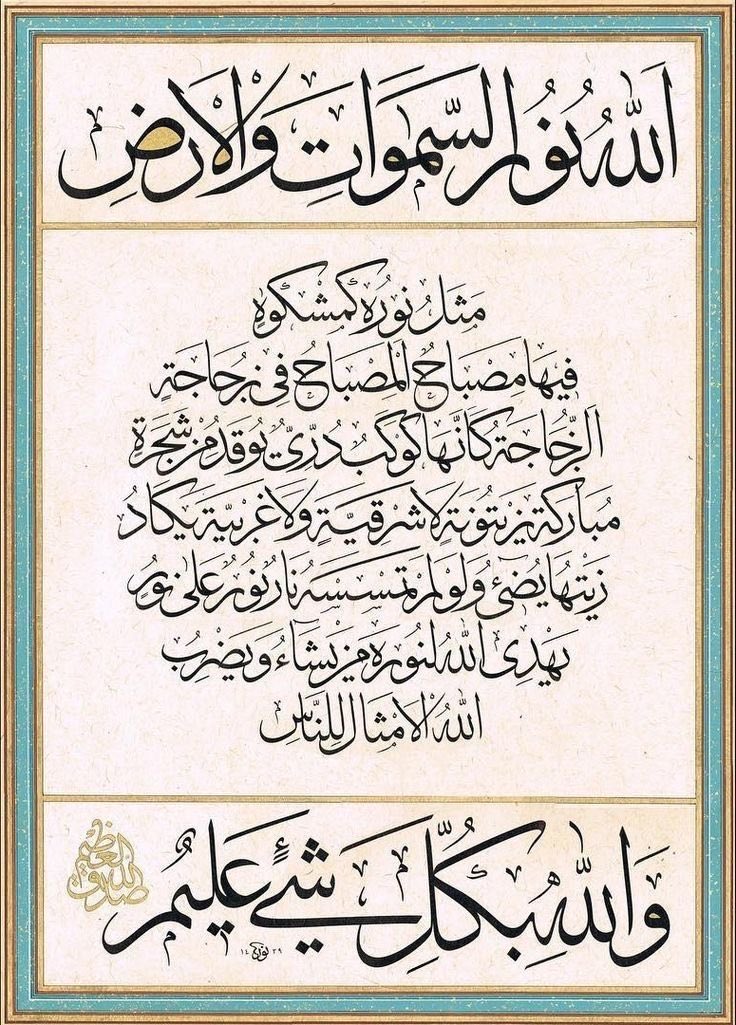 اَللّٰهُ نُورُ السَّمٰوَاتِ وَالْاَرْضِ
مَثَلُ نُورِهٖ كَمِشْكٰوةٍ
فِيهَا مِصْبَاحٌ اَلْمِصْبَاحُ فِى زُجَاجَةٍ
اَلزُّجَاجَةُ كَاَنَّهَا كَوْكَبٌ دُرِّىٌّ يُوقَدُ مِنْ شَجَرَةٍ
مُبَارَكَةٍ زَيْتُونَةٍ لَا شَرْقِيَّةٍ وَلَا غَرْبِيَّةٍ يَكَادُ
زَيْتُهَا يُضِىٓءُ وَلَوْ لَمْ تَمْسَسْهُ نَارٌ نُورٌ عَلٰى نُورٍ
يَهْدِى اللّٰهُ لِنُورِهٖ مَنْ يَشَٓاءُ وَيَضْرِبُ
اللّٰهُ الْاَمْثَالَ لِلنَّاسِ
وَاللّٰهُ بِكُلِّ شَىْءٍ عَلِيمٌ
صدق الله العظيم